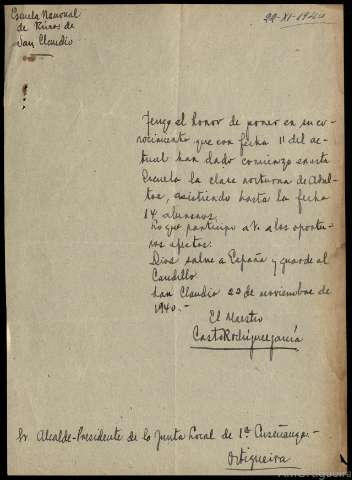 Escuela Nacional
de Niños de
San Claudio
22-XI-1940
Tengo el honor de poner en su co-
nocimiento que con fecha 11 del ac-
tual han dado comienzo en esta
Escuela la clase nocturna de Adul-
tos, asistiendo hasta la fecha
14 alumnos.
Lo que participo a V. a los oportu-
nos efectos.
Dios salve a España y guarde al
Caudillo.
San Claudio 22 de noviembre de
1940.-
El Maestro
Casto Rodríguez García
Sr. Alcalde-Presidente de la Junta Local de 1ª Enseñanza.-
Ortigueira